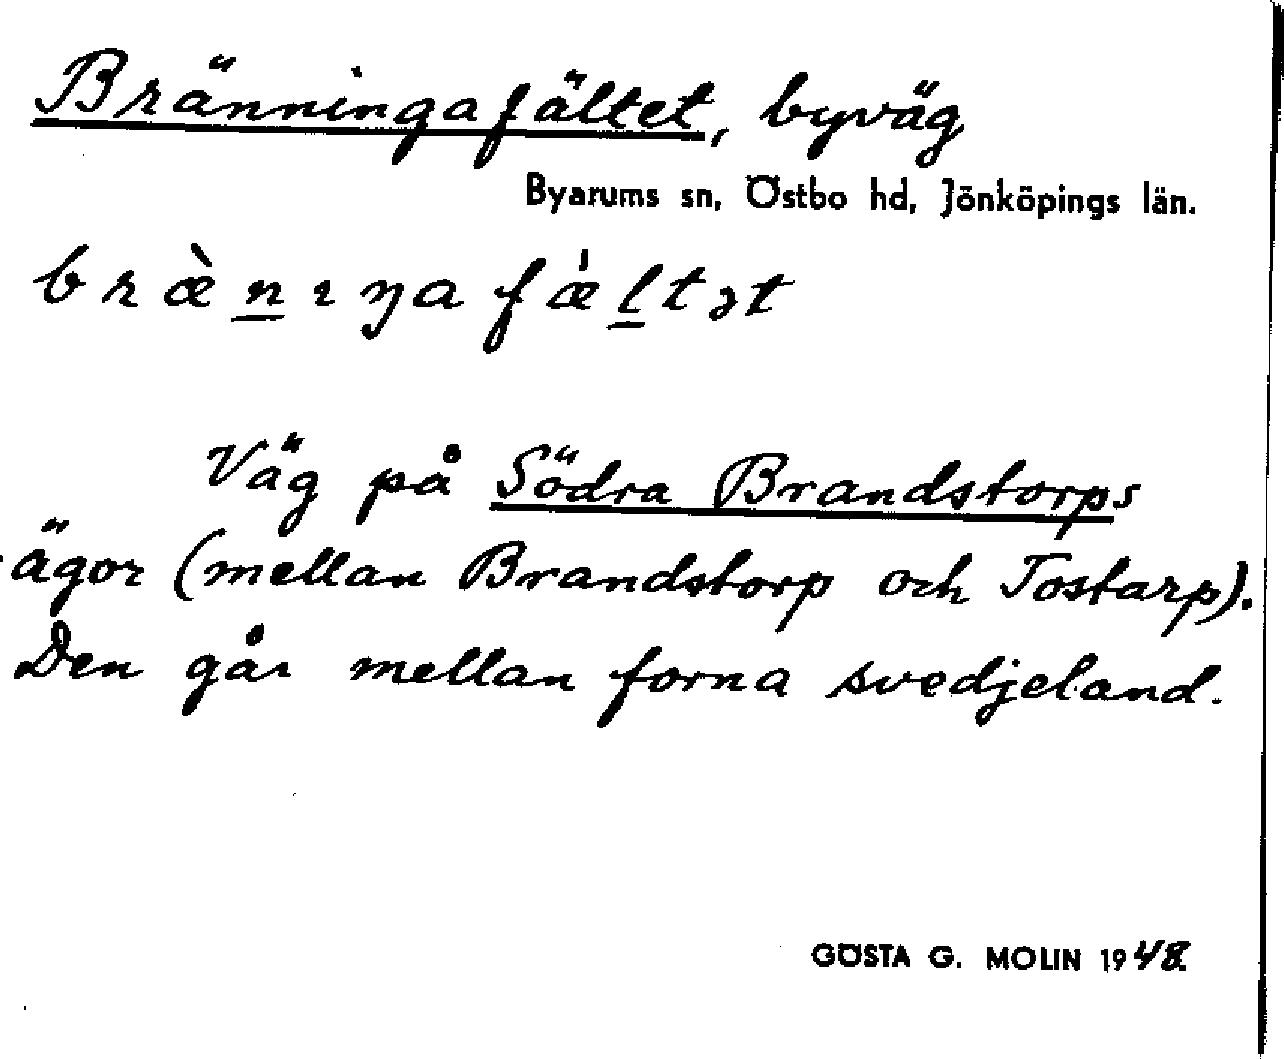 Bränningafältet, byväg
Byarums sn, Östbo hd, Jönköpings län.
bræ̀n̲ıŋafæ̍l̲tət
Väg på Södra Brandstorps
ägor (mellan Brandstorp och Tostarp).
Den går mellan forna svedjeland.
GÖSTA G. MOLIN 1948.